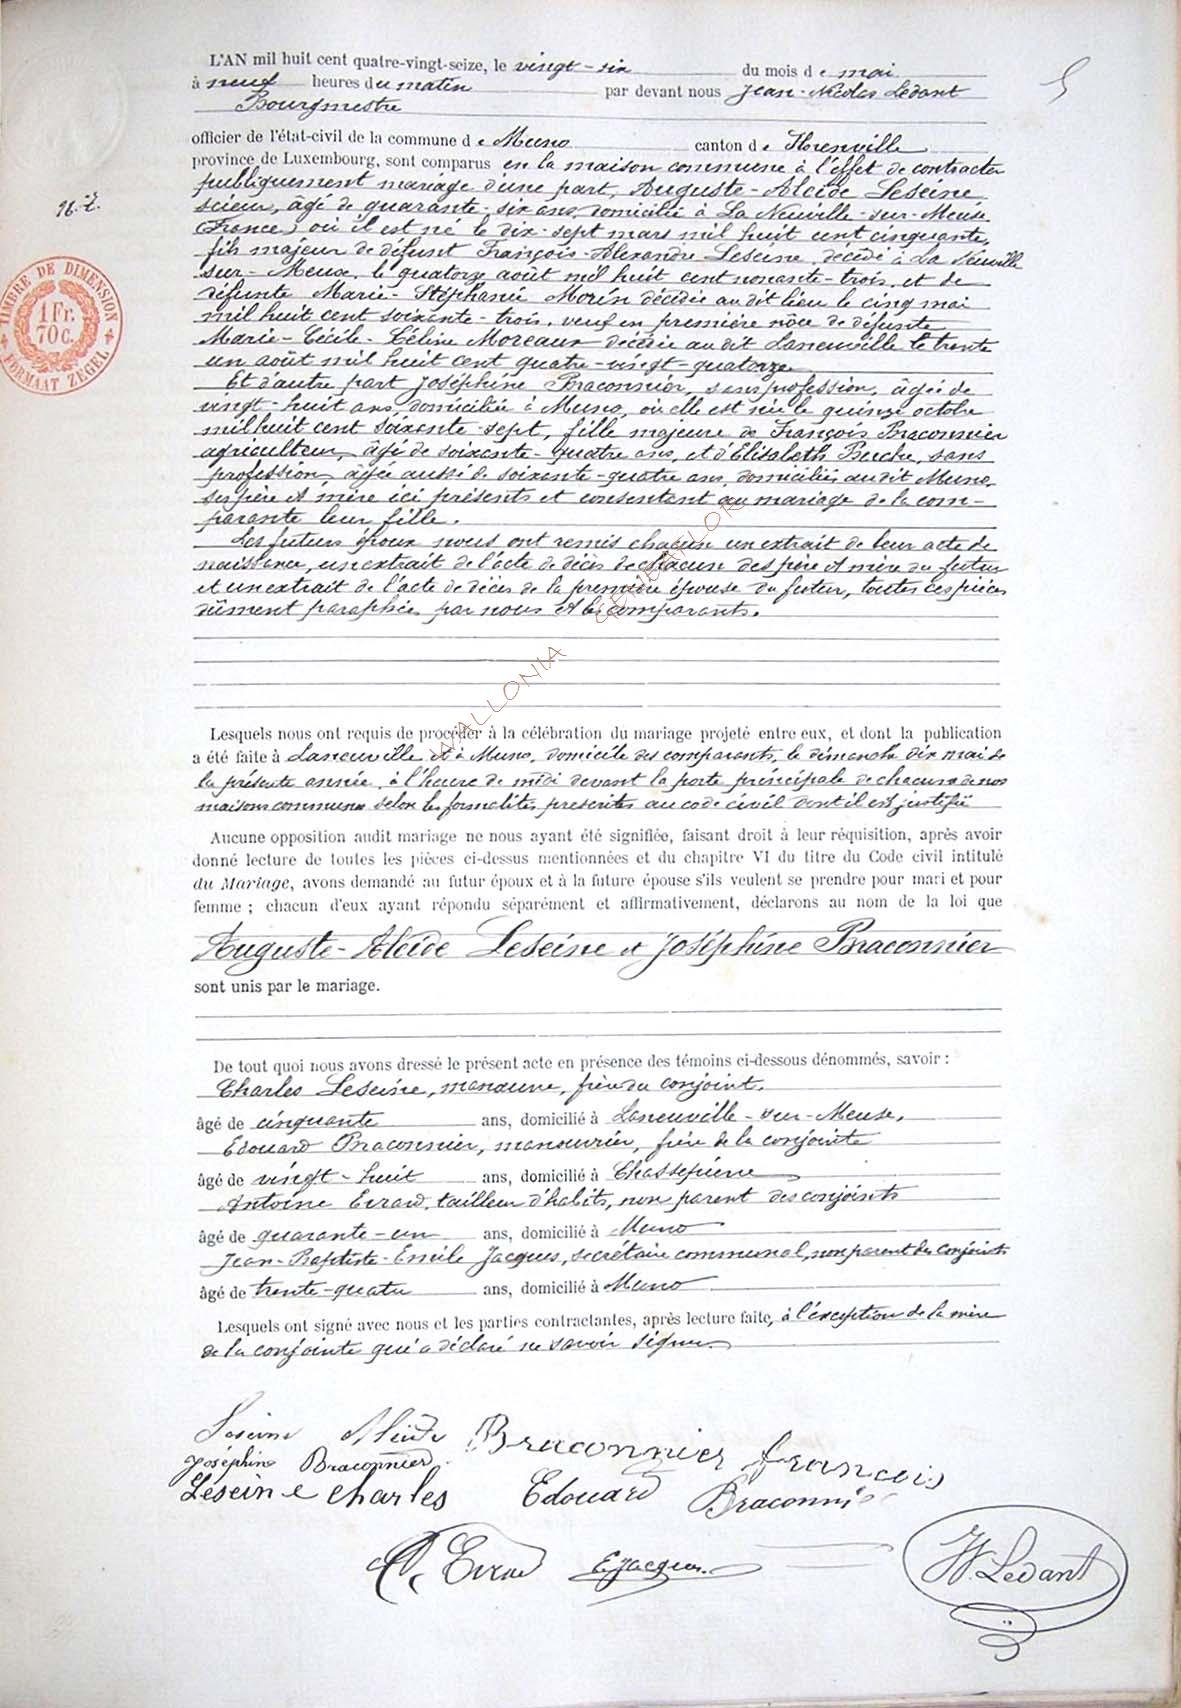 L'AN mil huit cent quatre-vingt-seize, le vingt-six du mois de mai
à neuf heures du matin par devant nous Jean-Nicolas Ledant
Bourgmestre
officier de l'état-civil de la commune de Muno canton de Florenville
province de Luxembourg, sont comparus en la maison commune à l'effet de contracter
publiquement mariage d'une part, Auguste-Alcide Leseine
scieur, âgé de quarante-six ans, domicilié à La Neuville-sur-Meuse
(France) où il est né le dix-sept mars mil huit cent cinquante,
fils majeur de défunt François-Alexandre Leseine décédé à La Neuville
sur-Meuse, le quatorze août mil huit cent nonante-trois, et de
défunte Marie-Stéphanie Morin décédée au dit lieu le cinq mai
mil huit cent soixante-trois, veuf en première nôce de défunte
Marie-Cécile-Céline Moreaux décédée au dit Laneuville le trente
un août mil huit cent quatre-vingt-quatorze
Et d'autre part Joséphine Braconnier, sans profession, âgée de
vingt-huit ans, domiciliée à Muno, où elle est née le quinze octobre
mil huit cent soixante-sept, fille majeure de François Braconnier
agriculteur, âgé de soixante-quatre ans, et d'Elisabeth Buche, sans
profession, âgée aussi de soixante-quatre ans, domiciliés au dit Muno,
ses père et mère ici présents et consentant au mariage de la com-
parante leur fille.
Les futurs époux nous ont remis chacun un extrait de leur acte de
naissance, un extrait de l'acte de décès de chacun des père et mère du futur
et un extrait de l'acte de décès de la première épouse du futur, toutes ces pièces
dûment paraphées par nous et les comparants.
WALLONIA GENEAFLOR
Lesquels nous ont requis de procéder à la célébration du mariage projeté entre eux, et dont la publication
a été faite à Laneuville et à Muno, domicile des comparants, le dimanche dix mai de
la présente année, à l'heure de midi devant la porte principale de chacune de nos
maisons communes selon les formalités prescrites au code civil dont il est justifié
Aucune opposition audit mariage ne nous ayant été signifiée, faisant droit à leur réquisition, après avoir
donné lecture de toutes les pièces ci-dessus mentionnées et du chapitre VI du titre du Code civil intitulé
du Mariage, avons demandé au futur époux et à la future épouse s'ils veulent se prendre pour mari et pour
femme ; chacun d'eux ayant répondu séparément et affirmativement, déclarons au nom de la loi que
Auguste-Alcide Leseine et Joséphine Braconnier
sont unis par le mariage.
De tout quoi nous avons dressé le présent acte en présence des témoins ci-dessous dénommés, savoir :
Charles Leseine, manœuvre, frère du conjoint,
âgé de cinquante ans, domicilié à Laneuville-sur-Meuse,
Edouard Braconnier, manouvrier, frère de la conjointe
âgé de vingt-huit ans, domicilié à Chassepierre
Antoine Evrard, tailleur d'habits, non parent des conjoints
âgé de quarante-un ans, domicilié à Muno
Jean-Baptiste-Emile Jacques, secrétaire communal, non parent des conjoints
âgé de trente-quatre ans, domicilié à Muno
Lesquels ont signé avec nous et les parties contractantes, après lecture faite, à l'exception de la mère
de la conjointe qui a déclaré ne savoir signer.
Leseine Alcide Braconnier françois
Joséphine Braconnier
Léseine charles Edouard Braconnier
A. Evrard E. Jacques
N. Ledant
TIMBRE DE DIMENSION
1 Fr.
70 c.
FORMAAT ZEGEL